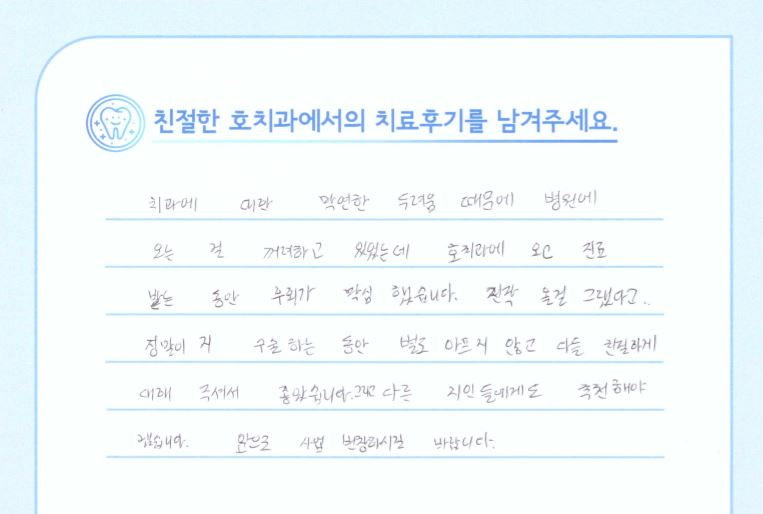 친절한 호치과에서의 치료후기를 남겨주세요.
치과에 따란 막연한 두려움 때문에 병원에
오는 걸 꺼려하고 있었는데 호치과에 오고 진료
받는 동안 후회가 막심 했습니다. 진작 올걸 그랬다고..
정말이지 수술 하는 동안 별로 아프지 않고 다들 친절하게
대해 주셔서 좋았습니다. 그리고 다른 지인들에게도 추천해야
겠습니다. 앞으로 사업 번창하시길 바랍니다.